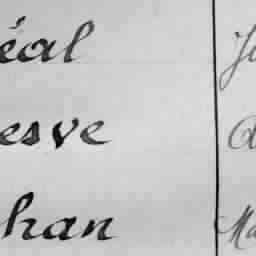 éal
esve
han